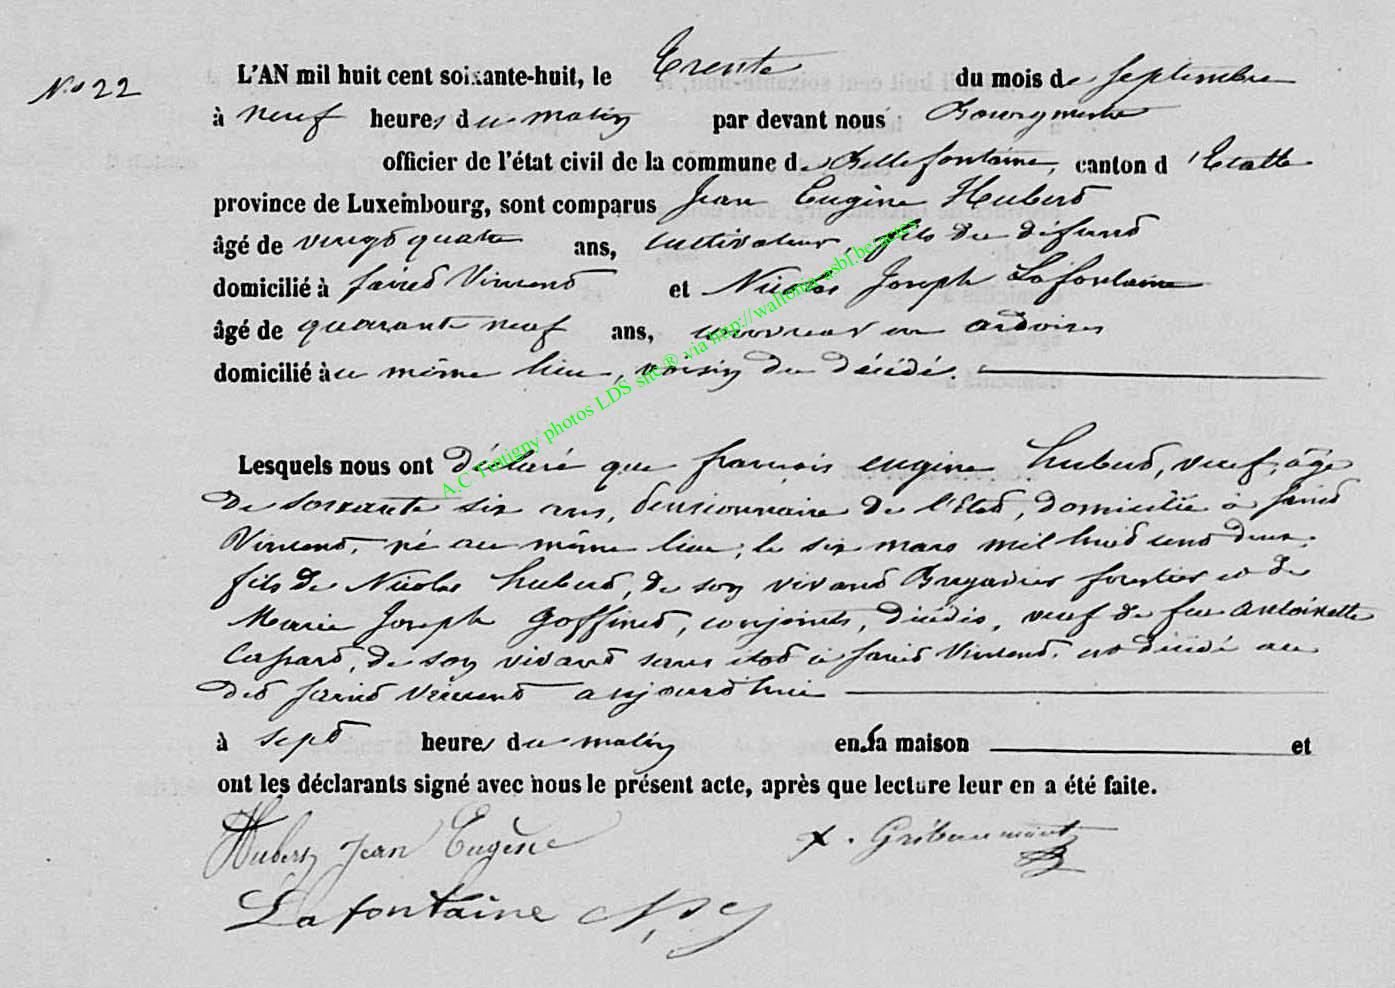 No 22
L'AN mil huit cent soixante-huit, le Trente du mois de Septembre
à neuf heures du matin par devant nous Bourgmestre
officier de l'état civil de la commune de Bellefontaine, canton d'Etalle
province de Luxembourg, sont comparus Jean Eugène Hubert
âgé de vingt quatre ans, cultivateur, fils du défunt
domicilié à saint Vincent et Nicolas Joseph Lafontaine
âgé de quarante neuf ans, ouvrier en ardoises
domicilié au même lieu, voisin du décédé.
Lesquels nous ont déclaré que françois eugène hubert, veuf, âgé
de soixante six ans, pensionnaire de l'Etat, domicilié à saint
Vincent, né au même lieu, le six mars mil huit cent deux,
fils de Nicolas hubert, de son vivant Brigadier forestier et de
Marie Joseph Goffinet, conjoints, décédés, veuf de feu Antoinette
, de son vivant sans état à saint Vincent, est décédé au
dit saint Vincent aujourd'hui
à sept heures du matin en sa maison et
ont les déclarants signé avec nous le présent acte, après que lecture leur en a été faite.
Hubert Jean Eugène
Gribaumont
Lafontaine N, J
A.C Tintigny photos LDS site ® via http://wallonia-asbl.be/actes